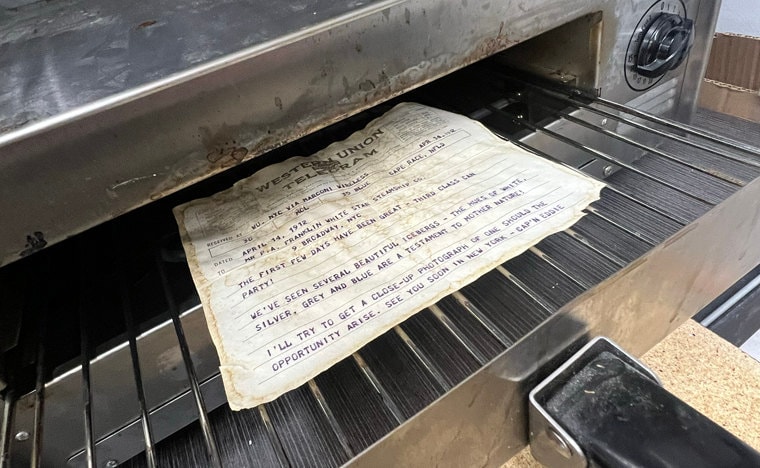 WESTERN UNION
TELEGRAM
APR 14, 12
WU. NYC VIA MARCONI WIRELESS
CAPE RACE, NFLD
RECEIVED AT
DATED APRIL 14, 1912
TO MR P.A. FRANKLIN WHITE STAR STEAMSHIP CO.
9 BROADWAY, NYC
THE FIRST FEW DAYS HAVE BEEN GREAT - THIRD CLASS CAN
PARTY!
WE'VE SEEN SEVERAL BEAUTIFUL ICEBERGS - THE HUES OF WHITE,
SILVER, GREY AND BLUE ARE A TESTAMENT TO MOTHER NATURE!
I'LL TRY TO GET A CLOSE-UP PHOTOGRAPH OF ONE SHOULD THE
OPPORTUNITY ARISE. SEE YOU SOON IN NEW YORK - CAP'N EDDIE